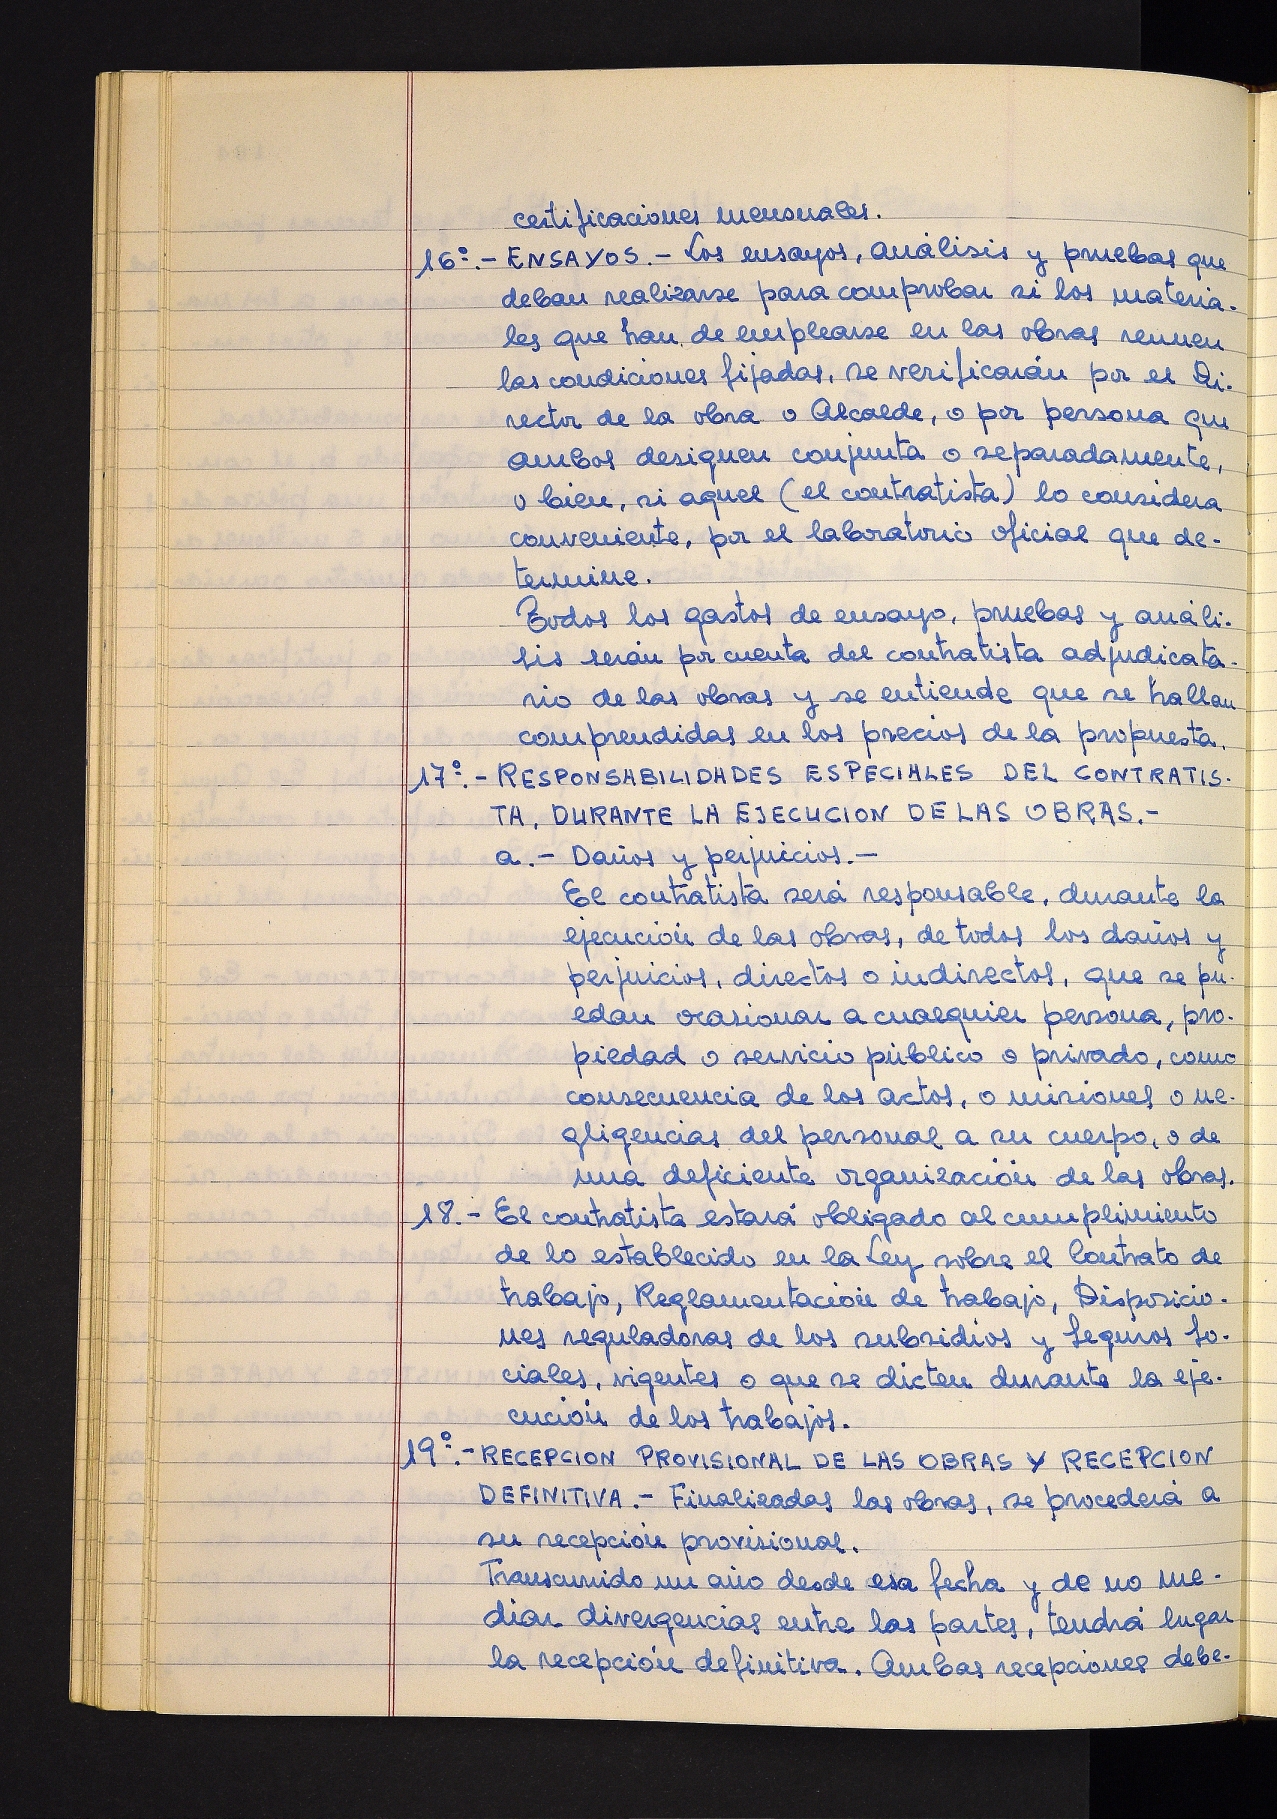 certificaciones mensuales.
16º.- ENSAYOS.- Los ensayos, análisis y pruebas que
deban realizarse para comprobar si los materia-
les que han de emplearse en las obras reunen
las condiciones fijadas, se verificarán por el Di-
rector de la obra o Alcalde, o por persona que
ambos designen conjunta o separadamente,
o bien, si aquel (el contratista) lo considera
conveniente, por el laboratorio oficial que de-
termine.
Todos los gastos de ensayo, pruebas y análi-
sis serán por cuenta del contratista adjudicata-
rio de las obras y se entiende que se hallan
comprendidas en los precios de la propuesta.
17º.- RESPONSABILIDADES ESPECIALES DEL CONTRATIS-
TA, DURANTE LA EJECUCION DE LAS OBRAS.-
a.- Daños y perjuicios.-
El contratista será responsable, durante la
ejecución de las obras, de todos los daños y
perjuicios, directos o indirectos, que se pu-
edan ocasionar a cualquier persona, pro-
piedad o servicio público o privado, como
consecuencia de los actos, o misiones o ne-
gligencias del personal a su cuerpo, o de
una deficiente organización de las obras.
18.- El contratista estará obligado al cumplimiento
de lo establecido en la Ley sobre el Contrato de
trabajo, Reglamentación de trabajo, Disposicio-
nes reguladoras de los subsidios y Seguros So-
ciales, vigentes o que se dicten durante la eje-
cución de los trabajos.
19º.- RECEPCION PROVISIONAL DE LAS OBRAS Y RECEPCION
DEFINITIVA.- Finalizadas las obras, se procederá a
su recepción provisional.
Transcurrido un año desde esa fecha y de no me-
diar divergencias entre las partes, tendrá lugar
la recepción definitiva. Ambas recepciones debe-